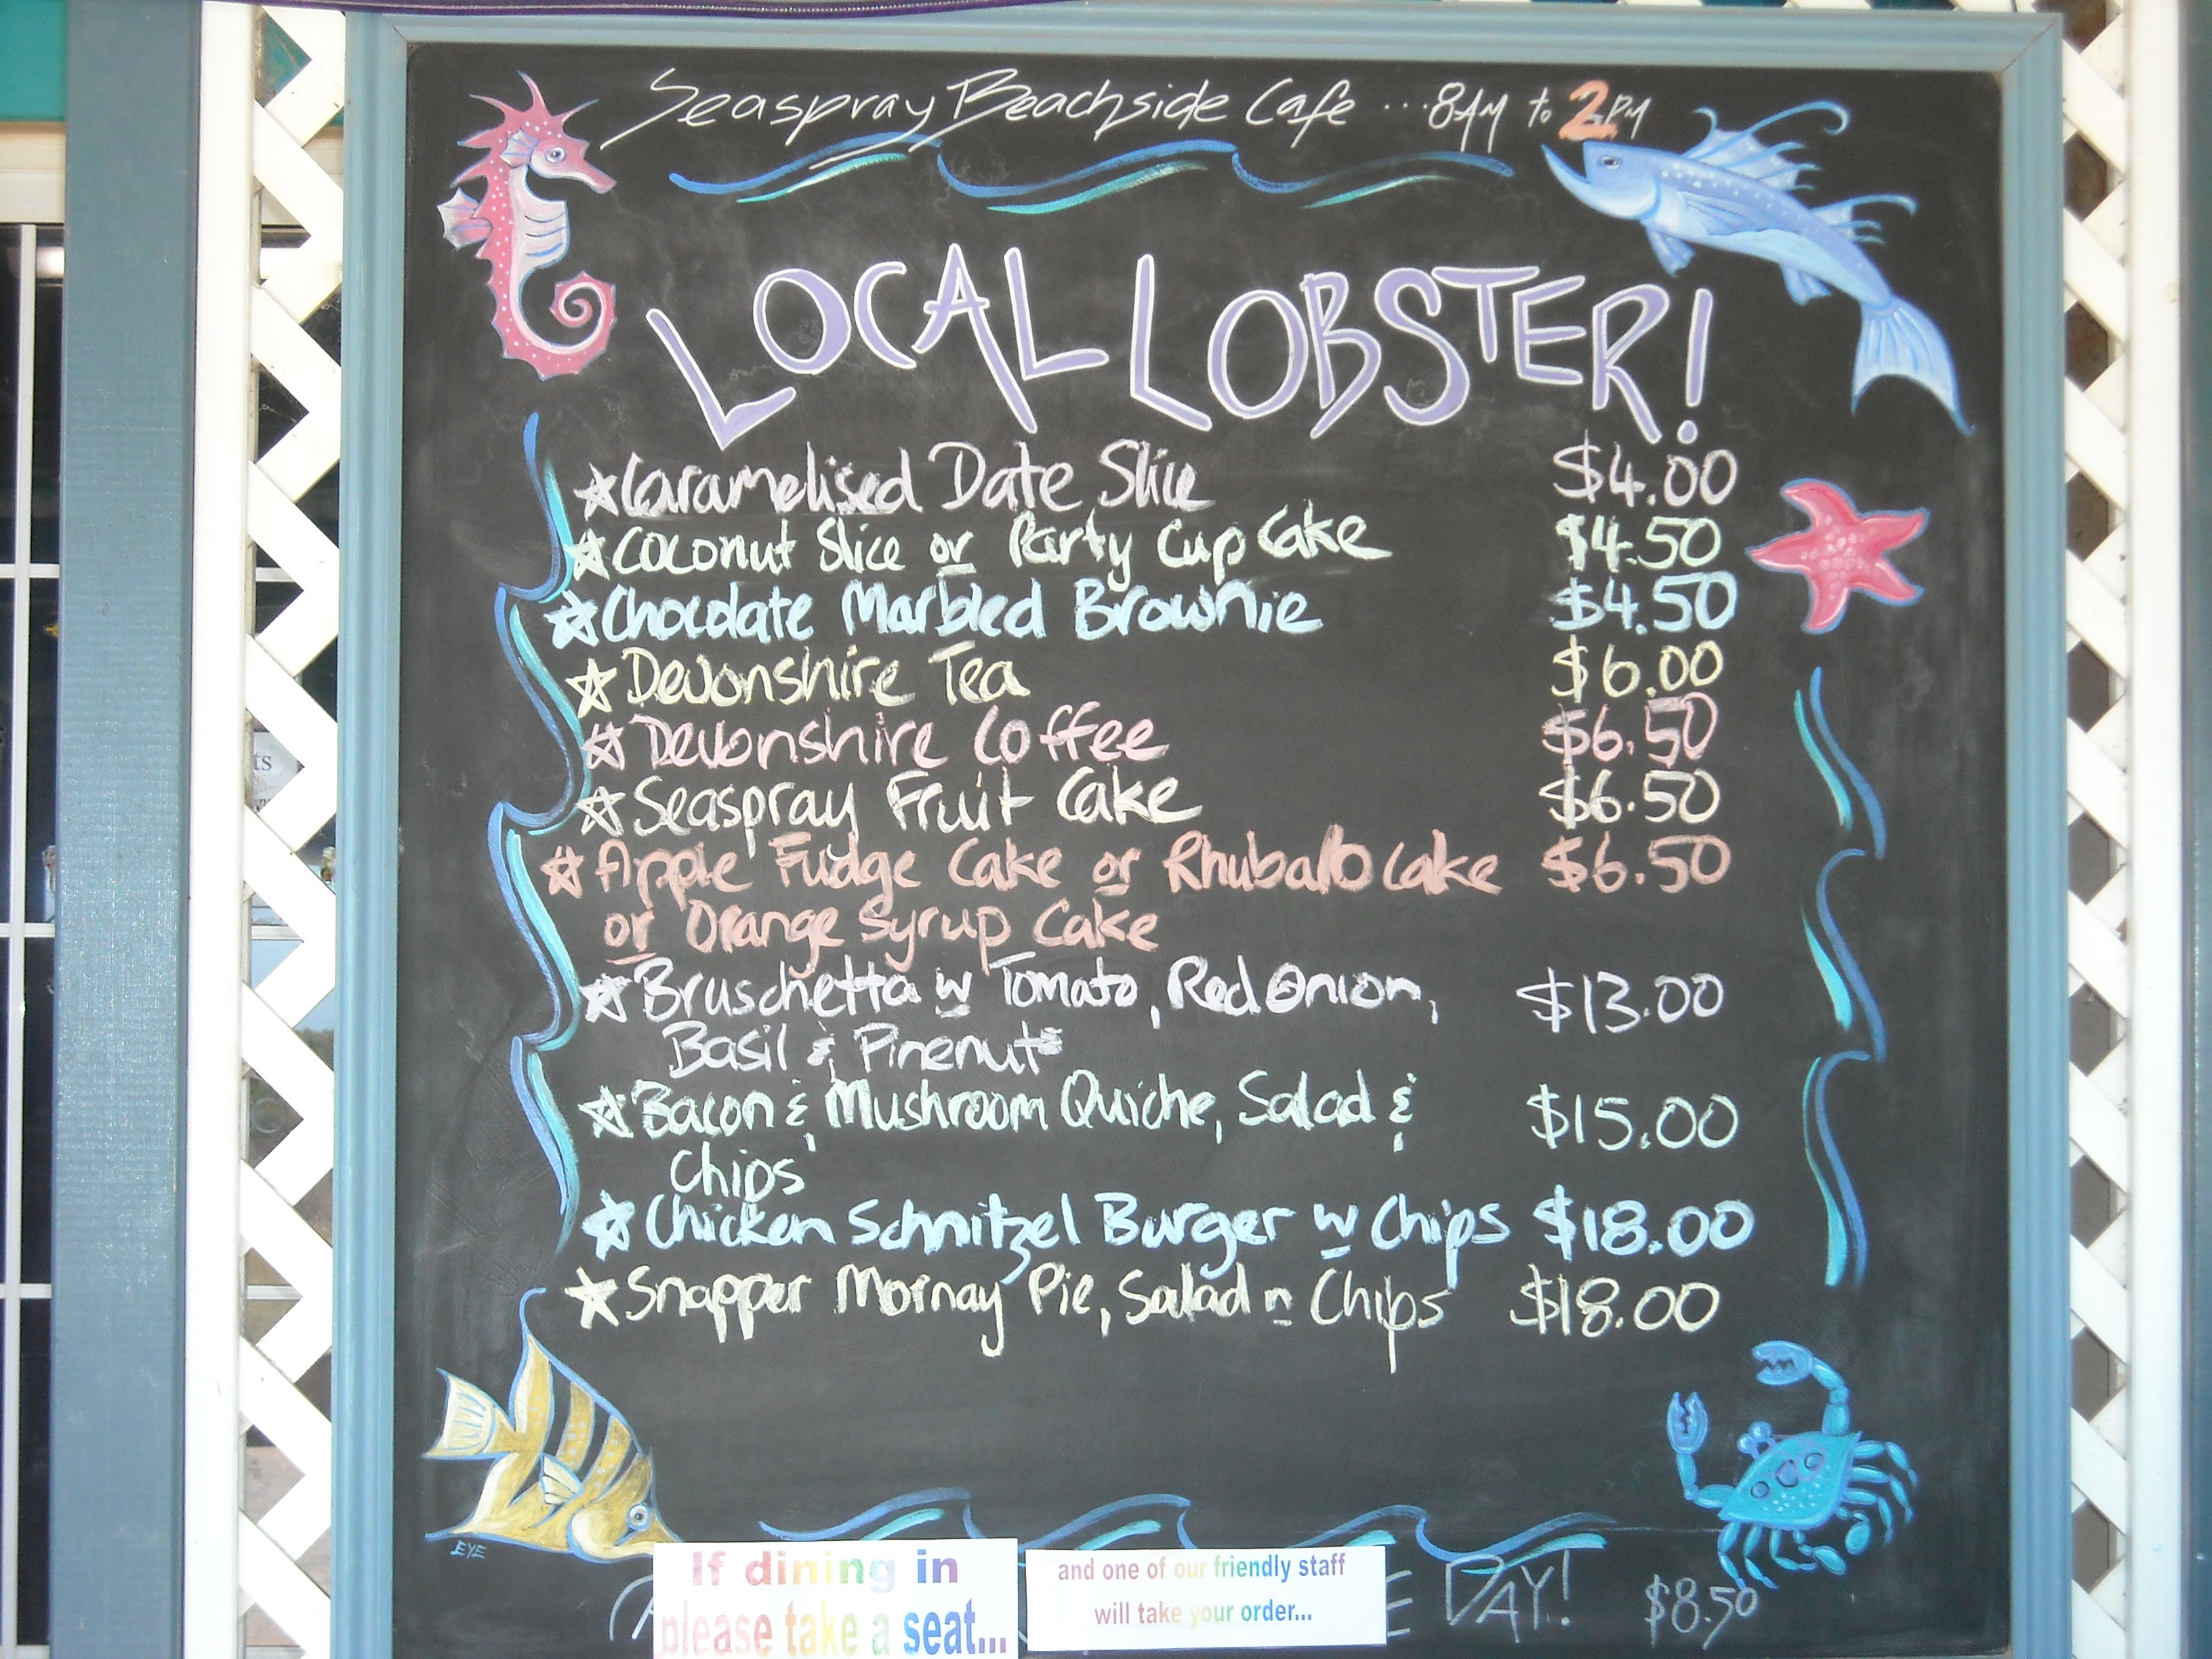 Seaspray Beachside Cafe ... 8AM to 2PM
LOCAL LOBSTER!
Caramelised Date Slice $4.00
Coconut Slice or Party Cup Cake $4.50
Chocolate Marbled Brownie $4.50
Devonshire Tea $6.00
Devonshire Coffee $6.50
Seaspray Fruit Cake $6.50
Apple Fudge Cake or Rhubarb Cake $6.50
or Orange Syrup Cake
Bruschetta w Tomato, Red Onion, $13.00
Basil & Pinenuts
Bacon & Mushroom Quiche, Salad & $15.00
Chips
Chicken Schnitzel Burger w Chips $18.00
Snapper Mornay Pie, Salad n Chips $18.00
EYE
If dining in
please take a seat...
and one of our friendly staff
will take your order...
DAY! $8.50